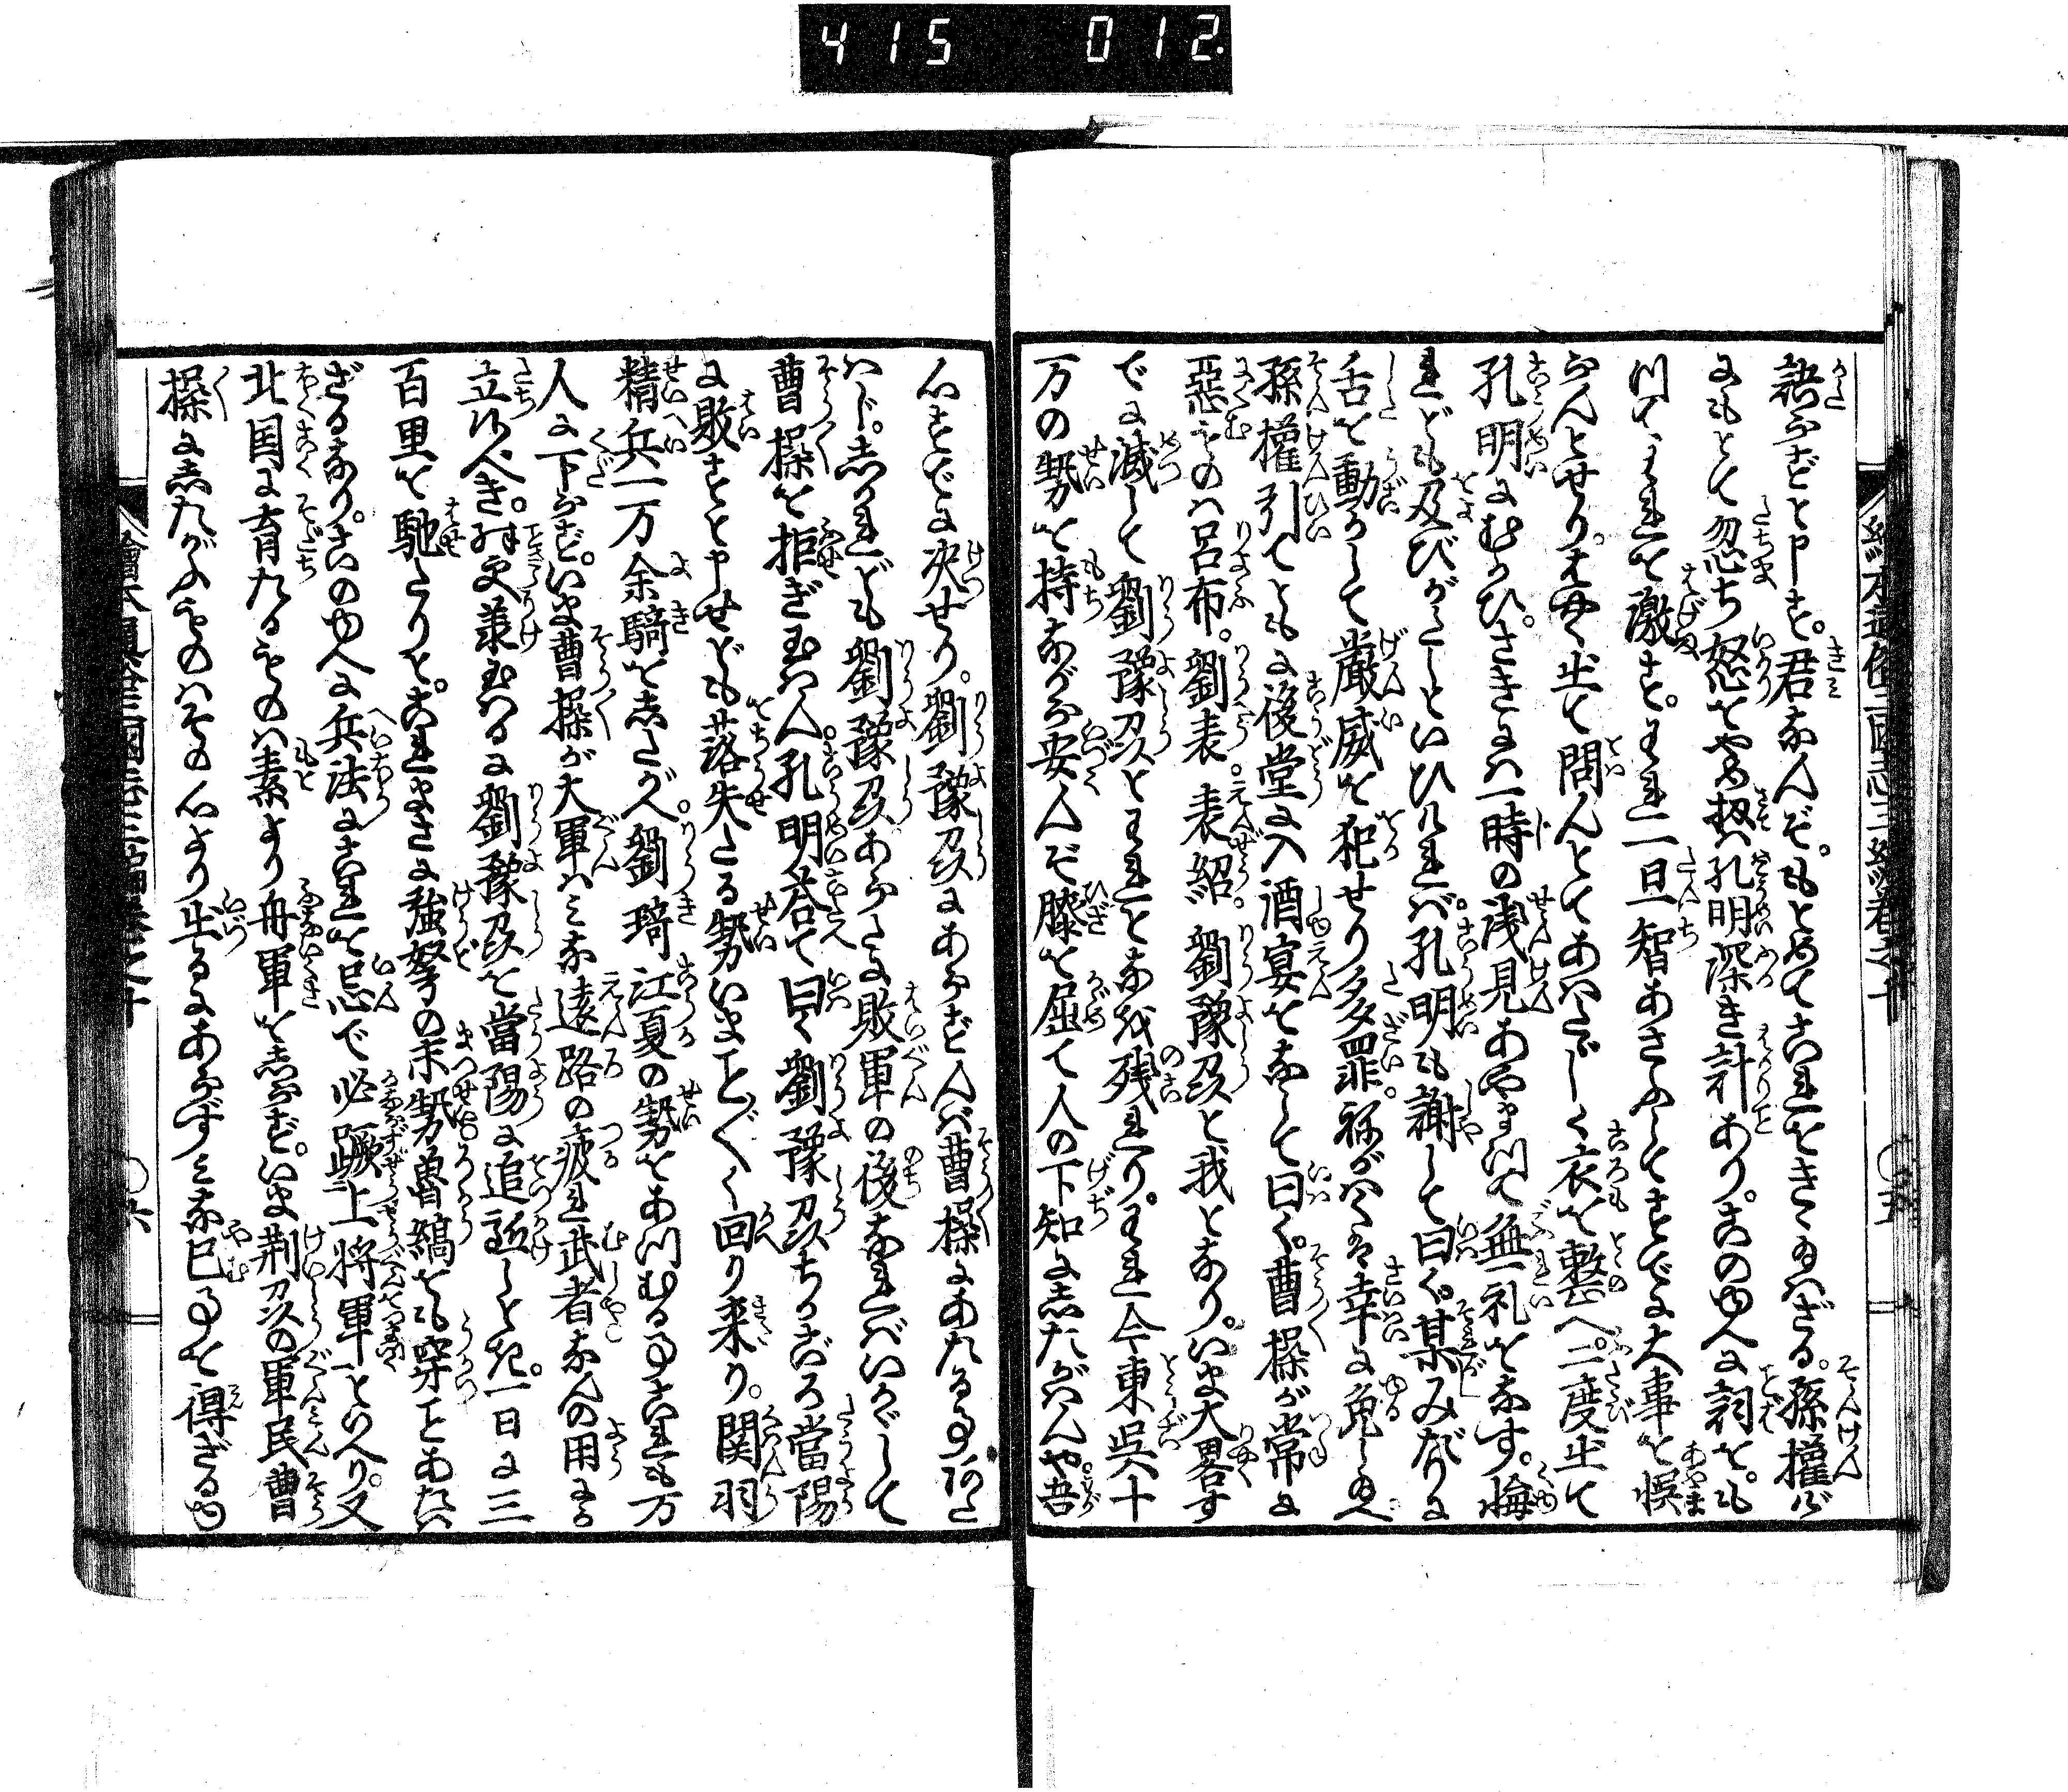 415 012.
語らずと申す。君なんぞ。もとめてこれをきゝ給はざる。孫權が
にもとて忽ち怒をやめ扨は孔明深き計あり。このゆへに詞を。も
つてわれを激す。われ一旦智あさふしてすでに大事を悞
らんとせり。又出て問んとてあはたゞしく衣を整へ。二度出て
孔明にむかひ。さきには一時の浅見あやまつて無礼をなす。悔
れども及びがたしといひければ。孔明も謝して曰く。某みだりに
舌を動かして嚴威を犯せり多罪。ねがはくは幸に免し給へ
孫權引てともに後堂に入酒宴をなして曰く。曹操が常に
惡ものは呂布。劉表。袁紹。劉豫刕と我となり。いま大畧す
でに滅して劉豫刕とわれとなを残れり。われ今東呉十
万の勢を持ながら安んぞ膝を屈て人の下知にしたがはんや。吾
心すでに决せり。劉豫刕にあらずんば曹操にあたる事あた
はじ。しかれども劉豫刕あらたに敗軍の後なればいかゞして
曹操を拒ぎ玉はん。孔明荅て曰く劉豫刕ちかごろ當陽
に敗すと申せども落失たる勢いまこと〲く回り来り。関羽
精兵一万余騎をしたがへ。劉琦江夏の勢をあつむる事これも万
人に下らず。いま曹操が大軍はみな遠路の疲れ武者なんの用にか
立候べき。殊更承はるに劉豫刕を當陽に追近しとき。一日に三
百里を馳たりと。これまさに強弩の末勢魯縞をも穿ことあたは
ざるなり。このゆへに兵法にこれを忌で必蹶上将軍といへり。又
北国に育たるものは素より舟軍をしらず。いま荆刕の軍民曹
操にしたがふものはその心より出るにあらずみな已事を得ざるゆ